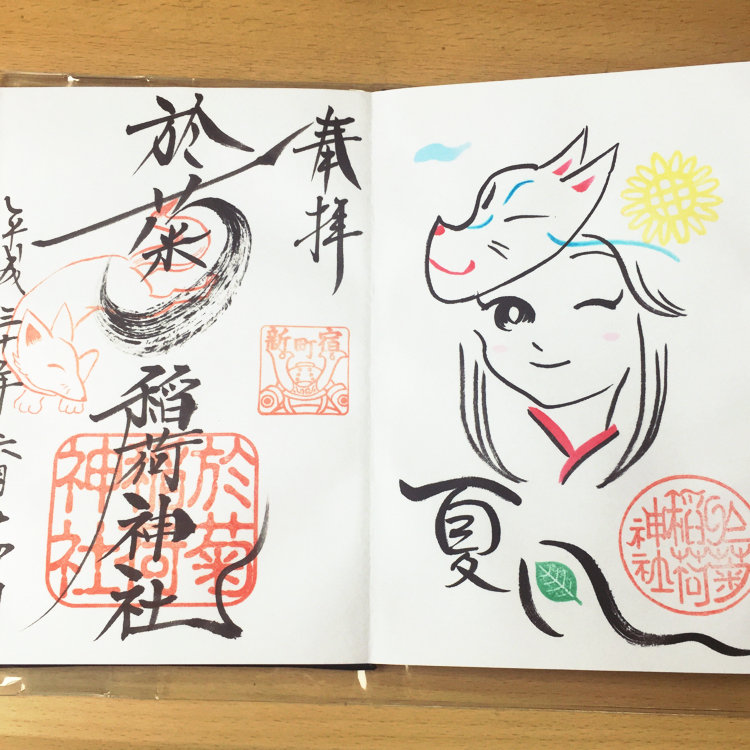 奉拝
於菊稲荷神社
平成三十年六月十四日
新町宿
於菊稲荷神社
夏
於菊稲荷神社